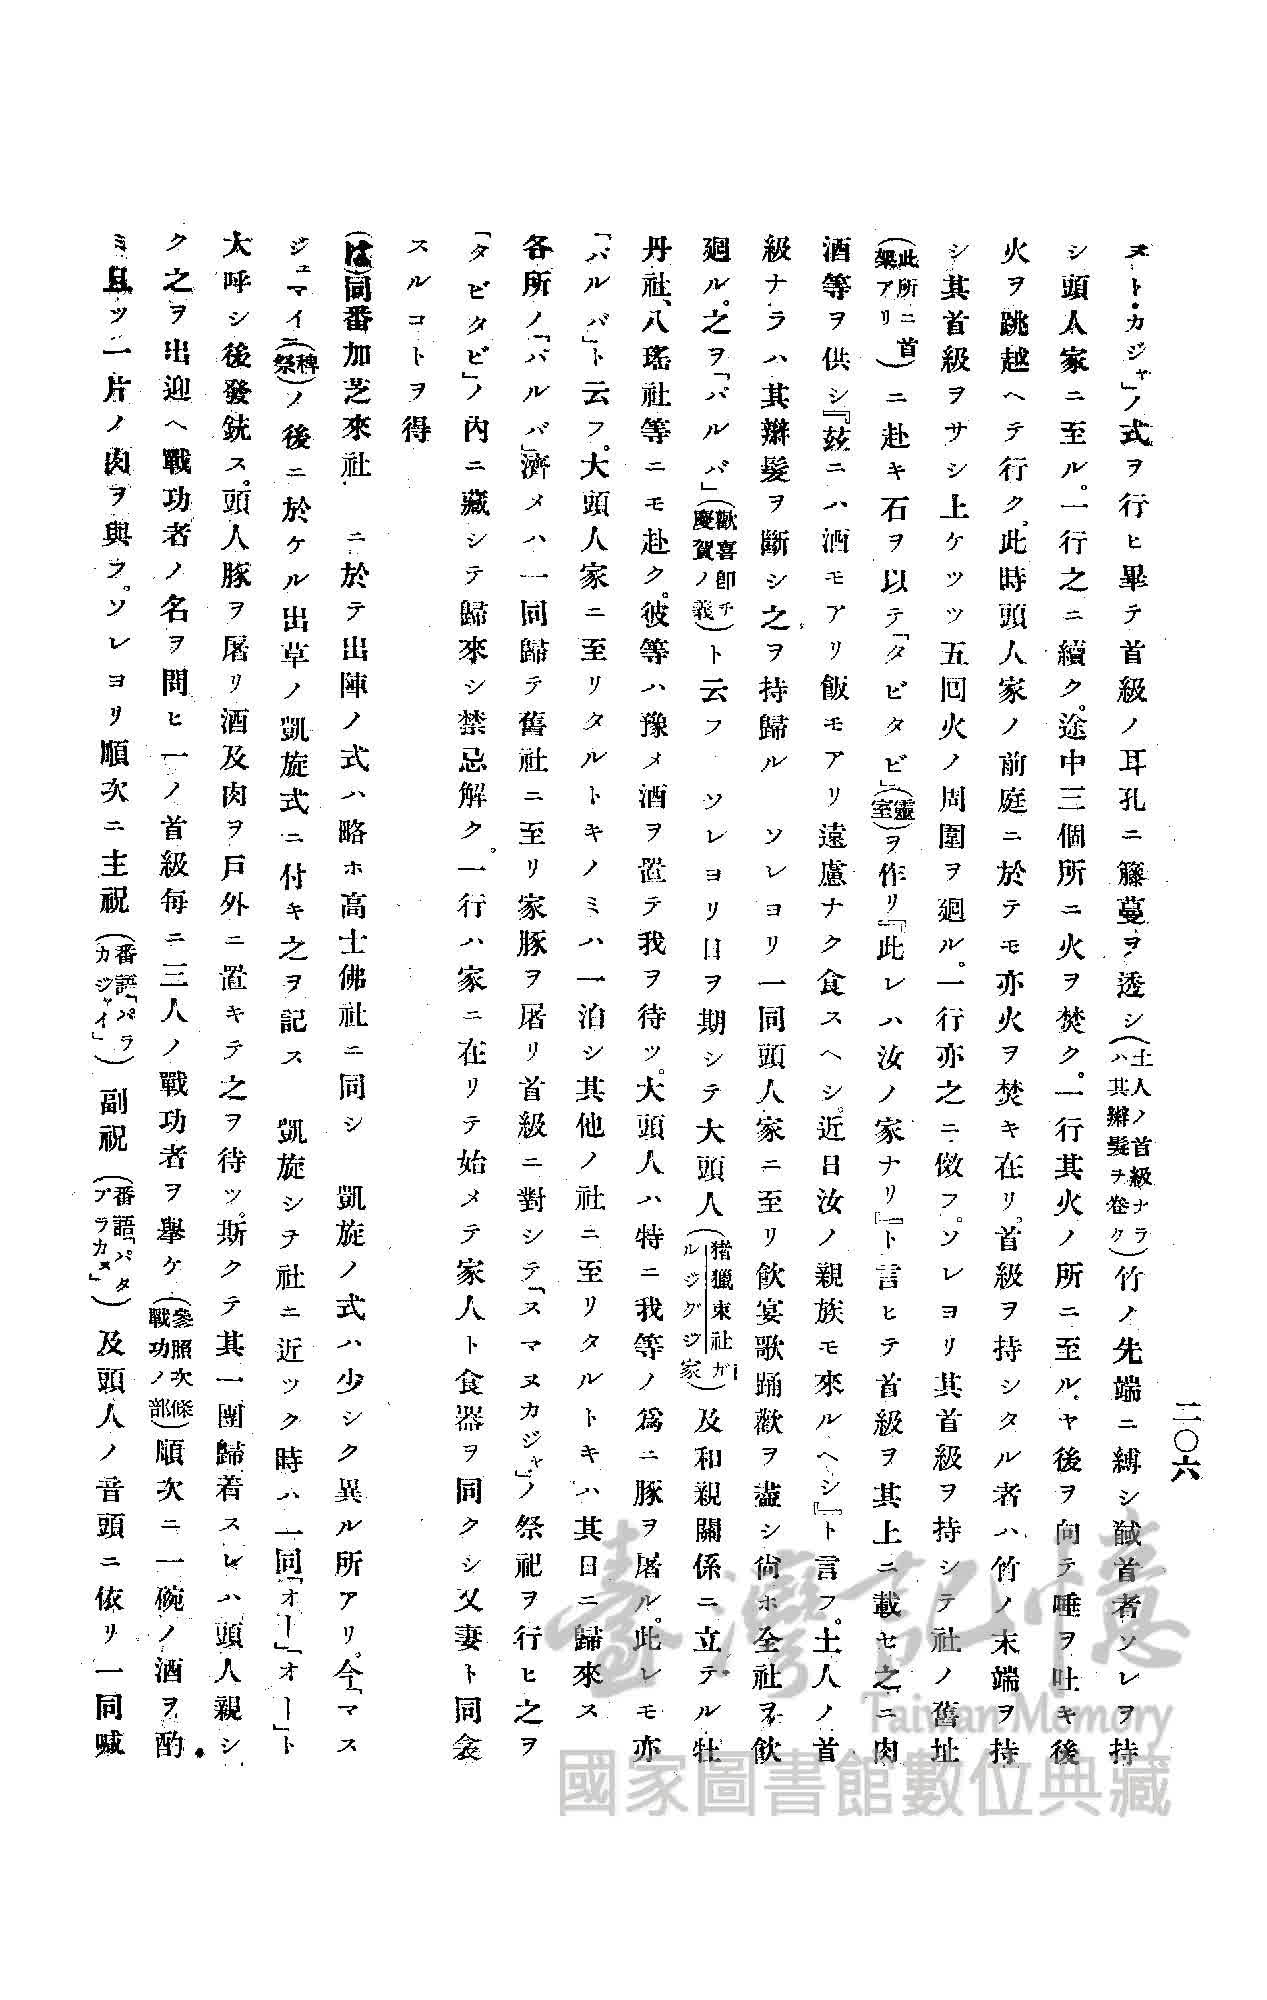 二〇六
ヌト・カジャ」ノ式ヲ行ヒ畢テ首級ノ耳孔ニ籐蔓ヲ透シ(土人ノ首級ナラハ其辮髮ヲ卷ク)竹ノ先端ニ縛シ馘首者ソレヲ持
シ頭人家ニ至ル。一行之ニ續ク。途中三個所ニ火ヲ焚ク。一行其火ノ所ニ至ルヤ後ヲ向テ唾ヲ吐キ後
火ヲ跳越ヘテ行ク。此時頭人家ノ前庭ニ於テモ亦火ヲ焚キ在リ。首級ヲ持シタル者ハ竹ノ末端ヲ持
シ其首級ヲサシ上ケツツ五回火ノ周圍ヲ廻ル。一行亦之ニ傚フ。ソレヨリ其首級ヲ持シテ社ノ舊址
(此所ニ首架アリ)ニ赴キ石ヲ以テ「タビタビ」(靈室)ヲ作リ『此レハ汝ノ家ナリ』ト言ヒテ首級ヲ其上ニ載セ之ニ肉
酒等ヲ供シ『茲ニハ酒モアリ飯モアリ遠慮ナク食スヘシ。近日汝ノ親族モ來ルヘシ』ト言フ。土人ノ首
級ナラハ其辮髮ヲ斷シ之ヲ持歸ル ソレヨリ一同頭人家ニ至リ飮宴歌踊歡ヲ盡シ尙ホ全社ヲ飮
廻ル。之ヲ「パルバ」(歡喜卽チ慶賀ノ義)ト云フ ソレヨリ日ヲ期シテ大頭人(猪朥束社ガルジグジ家)及和親關係ニ立テル牡
丹社、八瑤社等ニモ赴ク。彼等ハ豫メ酒ヲ置テ我ヲ待ツ。大頭人ハ特ニ我等ノ爲ニ豚ヲ屠ル。此レモ亦
「パルバ」ト云フ。大頭人家ニ至リタルトキノミハ一泊シ其他ノ社ニ至リタルトキハ其日ニ歸來ス
各所ノ「パルバ」濟メハ一同歸テ舊社ニ至リ家豚ヲ屠リ首級ニ對シテ「スマヌカジャ」ノ祭祀ヲ行ヒ之ヲ
「タビタビ」ノ內ニ藏シテ歸來シ禁忌解ク。一行ハ家ニ在リテ始メテ家人ト食器ヲ同クシ又妻ト同衾
スルコトヲ得
(は)同番加芝來社 ニ於テ出陣ノ式ハ略ホ高士佛社ニ同シ 凱旋ノ式ハ少シク異ル所アリ。今「マス
ジュマイ」(稗祭)ノ後ニ於ケル出草ノ凱旋式ニ付キ之ヲ記ス 凱旋シテ社ニ近ツク時ハ一同「オー」「オー」ト
大呼シ後發銃ス。頭人豚ヲ屠リ酒及肉ヲ戸外ニ置キテ之ヲ待ツ。斯クテ其一團歸着スレハ頭人親シ
ク之ヲ出迎ヘ戰功者ノ名ヲ問ヒ一ノ首級每ニ三人ノ戰功者ヲ擧ケ(參照次條戰功ノ部)順次ニ一碗ノ酒ヲ酌
ミ且ツ一片ノ肉ヲ與フ。ソレヨリ順次ニ主祝(番語「パラカジャイ」)副祝(番語「パタアラカヌ」)及頭人ノ音頭ニ依リ一同喊
臺灣記憶
Taiwan Memory
國家圖書館數位典藏